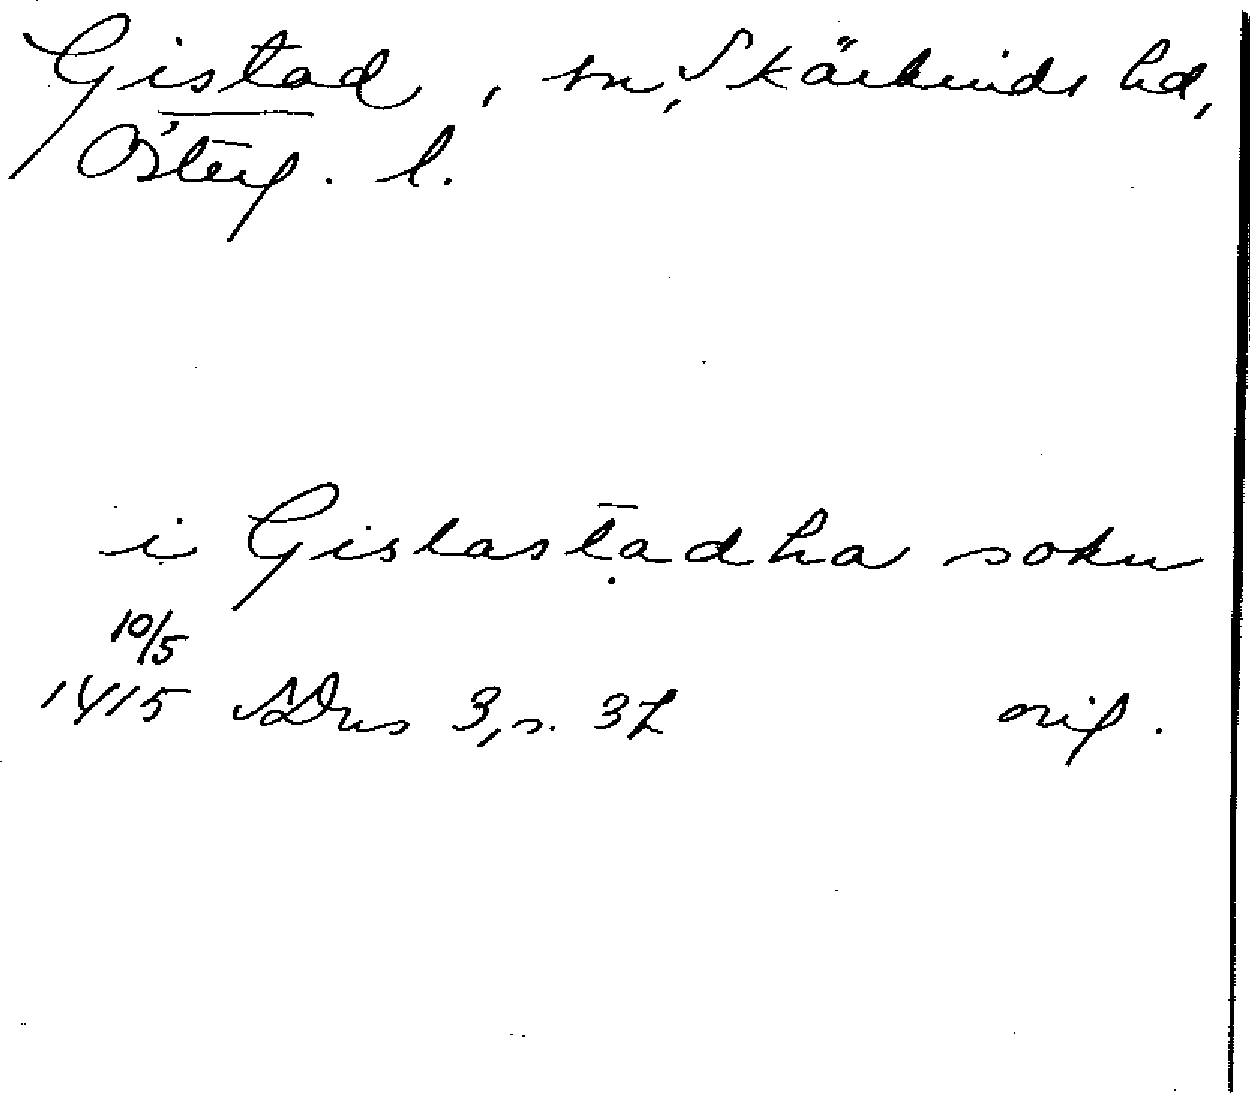 Gistad, sn, Skärkinds hd,
Österg. l.
i Gislastadha sokn
10/5
1415 SDns 3, s. 37 orig.